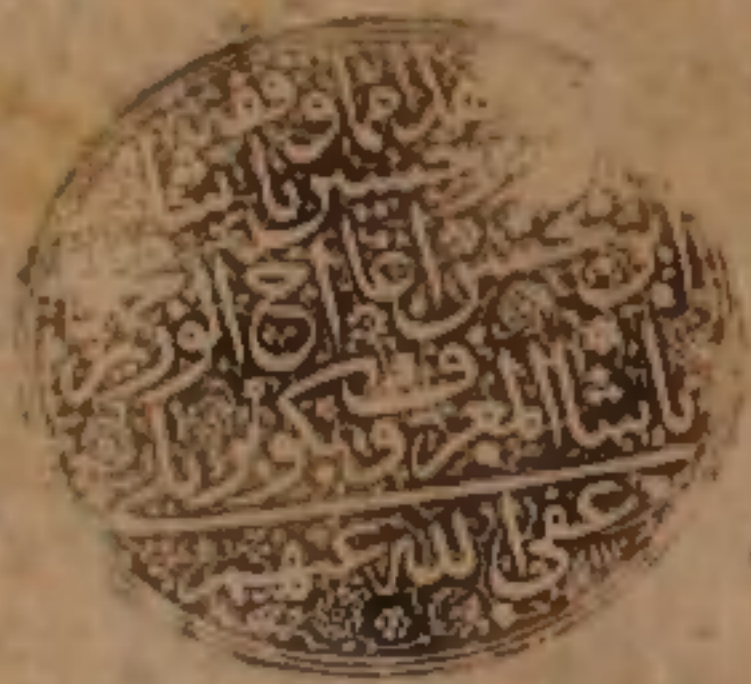 هذا مما وقفه
حسين باشا
ابن حسن اغا اخ الوزير
باشا المعروف
عفى الله عنهم